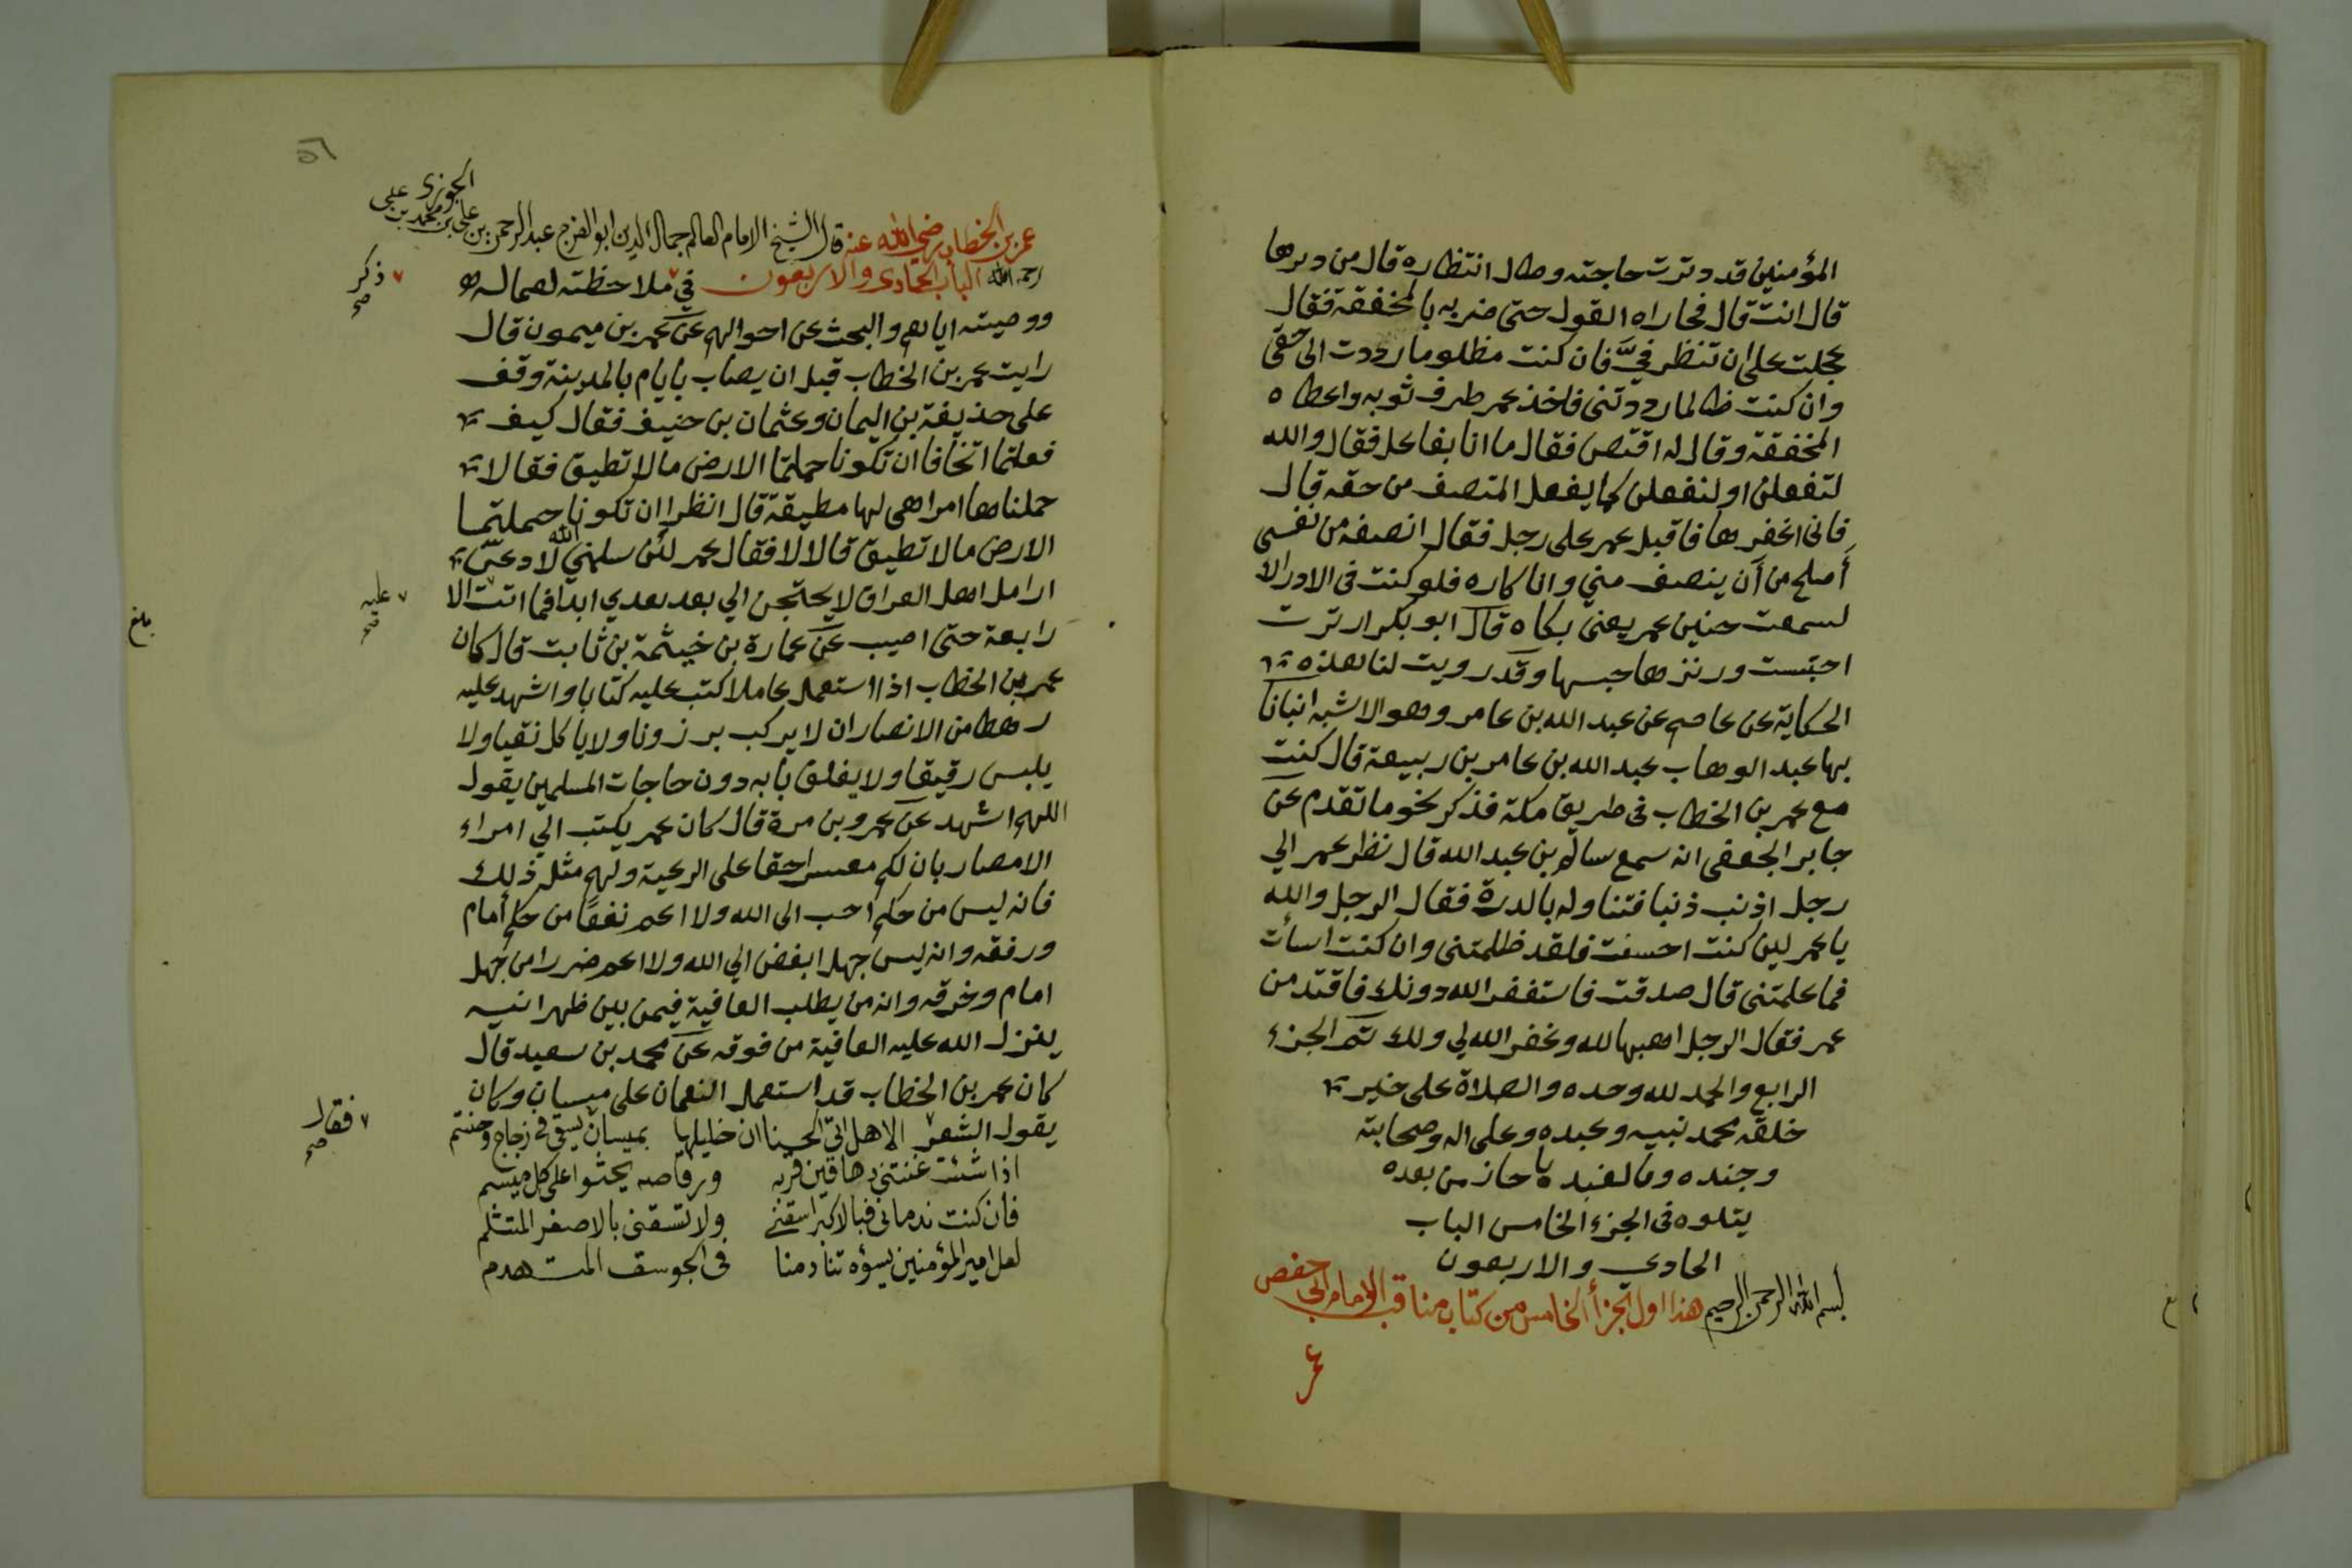 المؤمنين قد دترت حاجته وطال انتظاره قال من دبرها
قال انت قال فجاراه القول حتى ضربه بالمخفقة فقال
عجلت علي ان تنظر فيَّ فان كنت مظلوما رددت الى حقي
وان كنت ظالما رددتني فاخذ عمر طرف ثوبه واعطاه
المخفقة وقال له اقتص فقال ما انا بفاعل فقال والله
لتفعلن او لتفعلن كما يفعل المنتصف من حقه قال
فاني اغفرها فاقبل عمر على رجل فقال انصفه من نفسي
أصلح من أن ينصف مني وانا كاره فلو كنت في الادراك
لسمعت حنين عمر يعني بكاه قال ابو بكر ارترت
احتبست ورنزها حبسها وقد رويت لنا هذه
الحكاية عن عاصم عن عبد الله بن عامر وهو الاشبه انبانا
بها عبد الوهاب عبد الله بن عامر بن ربيعة قال كنت
مع عمر بن الخطاب في طريق مكة فذكر نحو ما تقدم عن
جابر الجعفي انه سمع سالم بن عبد الله قال نظر عمر الي
رجل اذنب ذنبا فتناوله بالدرة فقال الرجل والله
يا عمر لين كنت احسنت فلقد ظلمتني وان كنت اسأت
فما علمتني قال صدقت فاستغفر الله دونك فاقتد من
عمر فقال الرجل اهبها لله وغفر الله لي ولك تم الجزء
الرابع والحمد لله وحده والصلاة على خير
خلقه محمد نبيه وعبده وعلى اله وصحابته
وجنده من بعده
يتلوه في الجزء الخامس الباب
الحادي والاربعون
بسم الله الرحمن الرحيم هذا اول الجزأ الخامس من كتاب مناقب الامام ابي حفص
عمر
عمر بن الخطاب رضي الله عنه قال الشيخ الامام العالم جمال الدين ابو الفرج عبد الرحمن بن علي بن محمد بن علي الجوزي
رحمه الله الباب الحادي والاربعون في ملاحظته لعماله
ذكر صح
ووصيته اياهم والبحث عن احوالهم عن عمر بن ميمون قال
رايت عمر بن الخطاب قبل ان يصاب بايام بالمدينة وقف
على حذيفة بن اليمان وعثمان بن حنيف فقال كيف
فعلتما اتخافا ان تكونا حملتما الارض ما لا تطيق فقالا
حملناها امرا هي لها مطيقة قال انظرا ان تكونا حملتما
الارض ما لا تطيق قالا لا فقال عمر لئن سلمني الله لادعن
ارامل اهل العراق لا يحتجن الي بعد بعدي ابدا فما اتت الا
عليه صح
رابعة حتى اصيب عن عمارة بن خيثمة بن ثابت قال كان
بلغ
عمر بن الخطاب اذا استعمل عاملا كتب عليه كتابا واشهد عليه
رهطا من الانصار ان لا يركب برزونا ولا ياكل نقيا ولا
يلبس رقيقا ولا يغلق بابه دون حاجات المسلمين يقول
اللهم اشهد عن عمرو بن مرة قال كان عمر يكتب الي امراء
الامصار بان لكم معسرا حقا على الرعية ولهم مثل ذلك
فانه ليس من حكم احب الى الله ولا اعم نفعًا من حكم أمام
ورفقه وانه ليس جهل ابغض الي الله ولا اعم ضررا من جهل
امام وخرقه وانه من يطلب العافية فيمن بين ظهرانيه
ينزل الله عليه العافية من فوقه عن محمد بن سعيد قال
كان عمر بن الخطاب قد استعمل النعمان على ميسان وكان
يقول الشعر الا هل اتى الحسنا ان خليلها بميسان يسقى في زجاج وحنتم
فقال صح
اذا شئت غنتني دهاقين قريه ورقاصه يحثوا على كل ميسم
فان كنت ندماني فبالاكبر اسقني ولا تسقني بالاصغر المتثلم
لعل امير المؤمنين يسؤه تنادمنا في الجوسق المتهدم